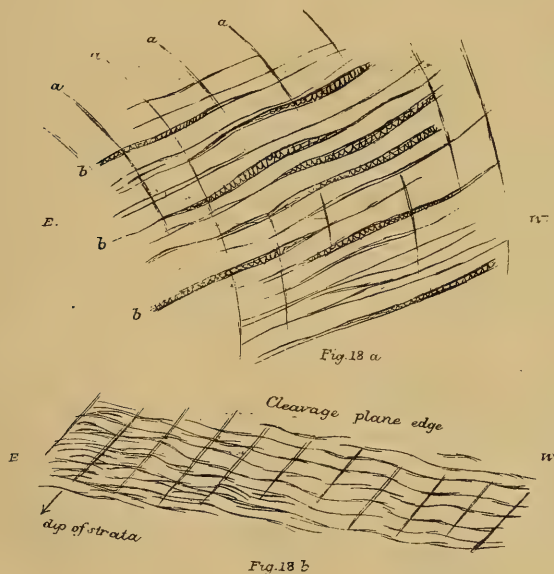 a
a
a
a
b
E.
W
b
b
Fig. 18 a
Cleavage plane edge
E
W
dip of strata
Fig. 18 b